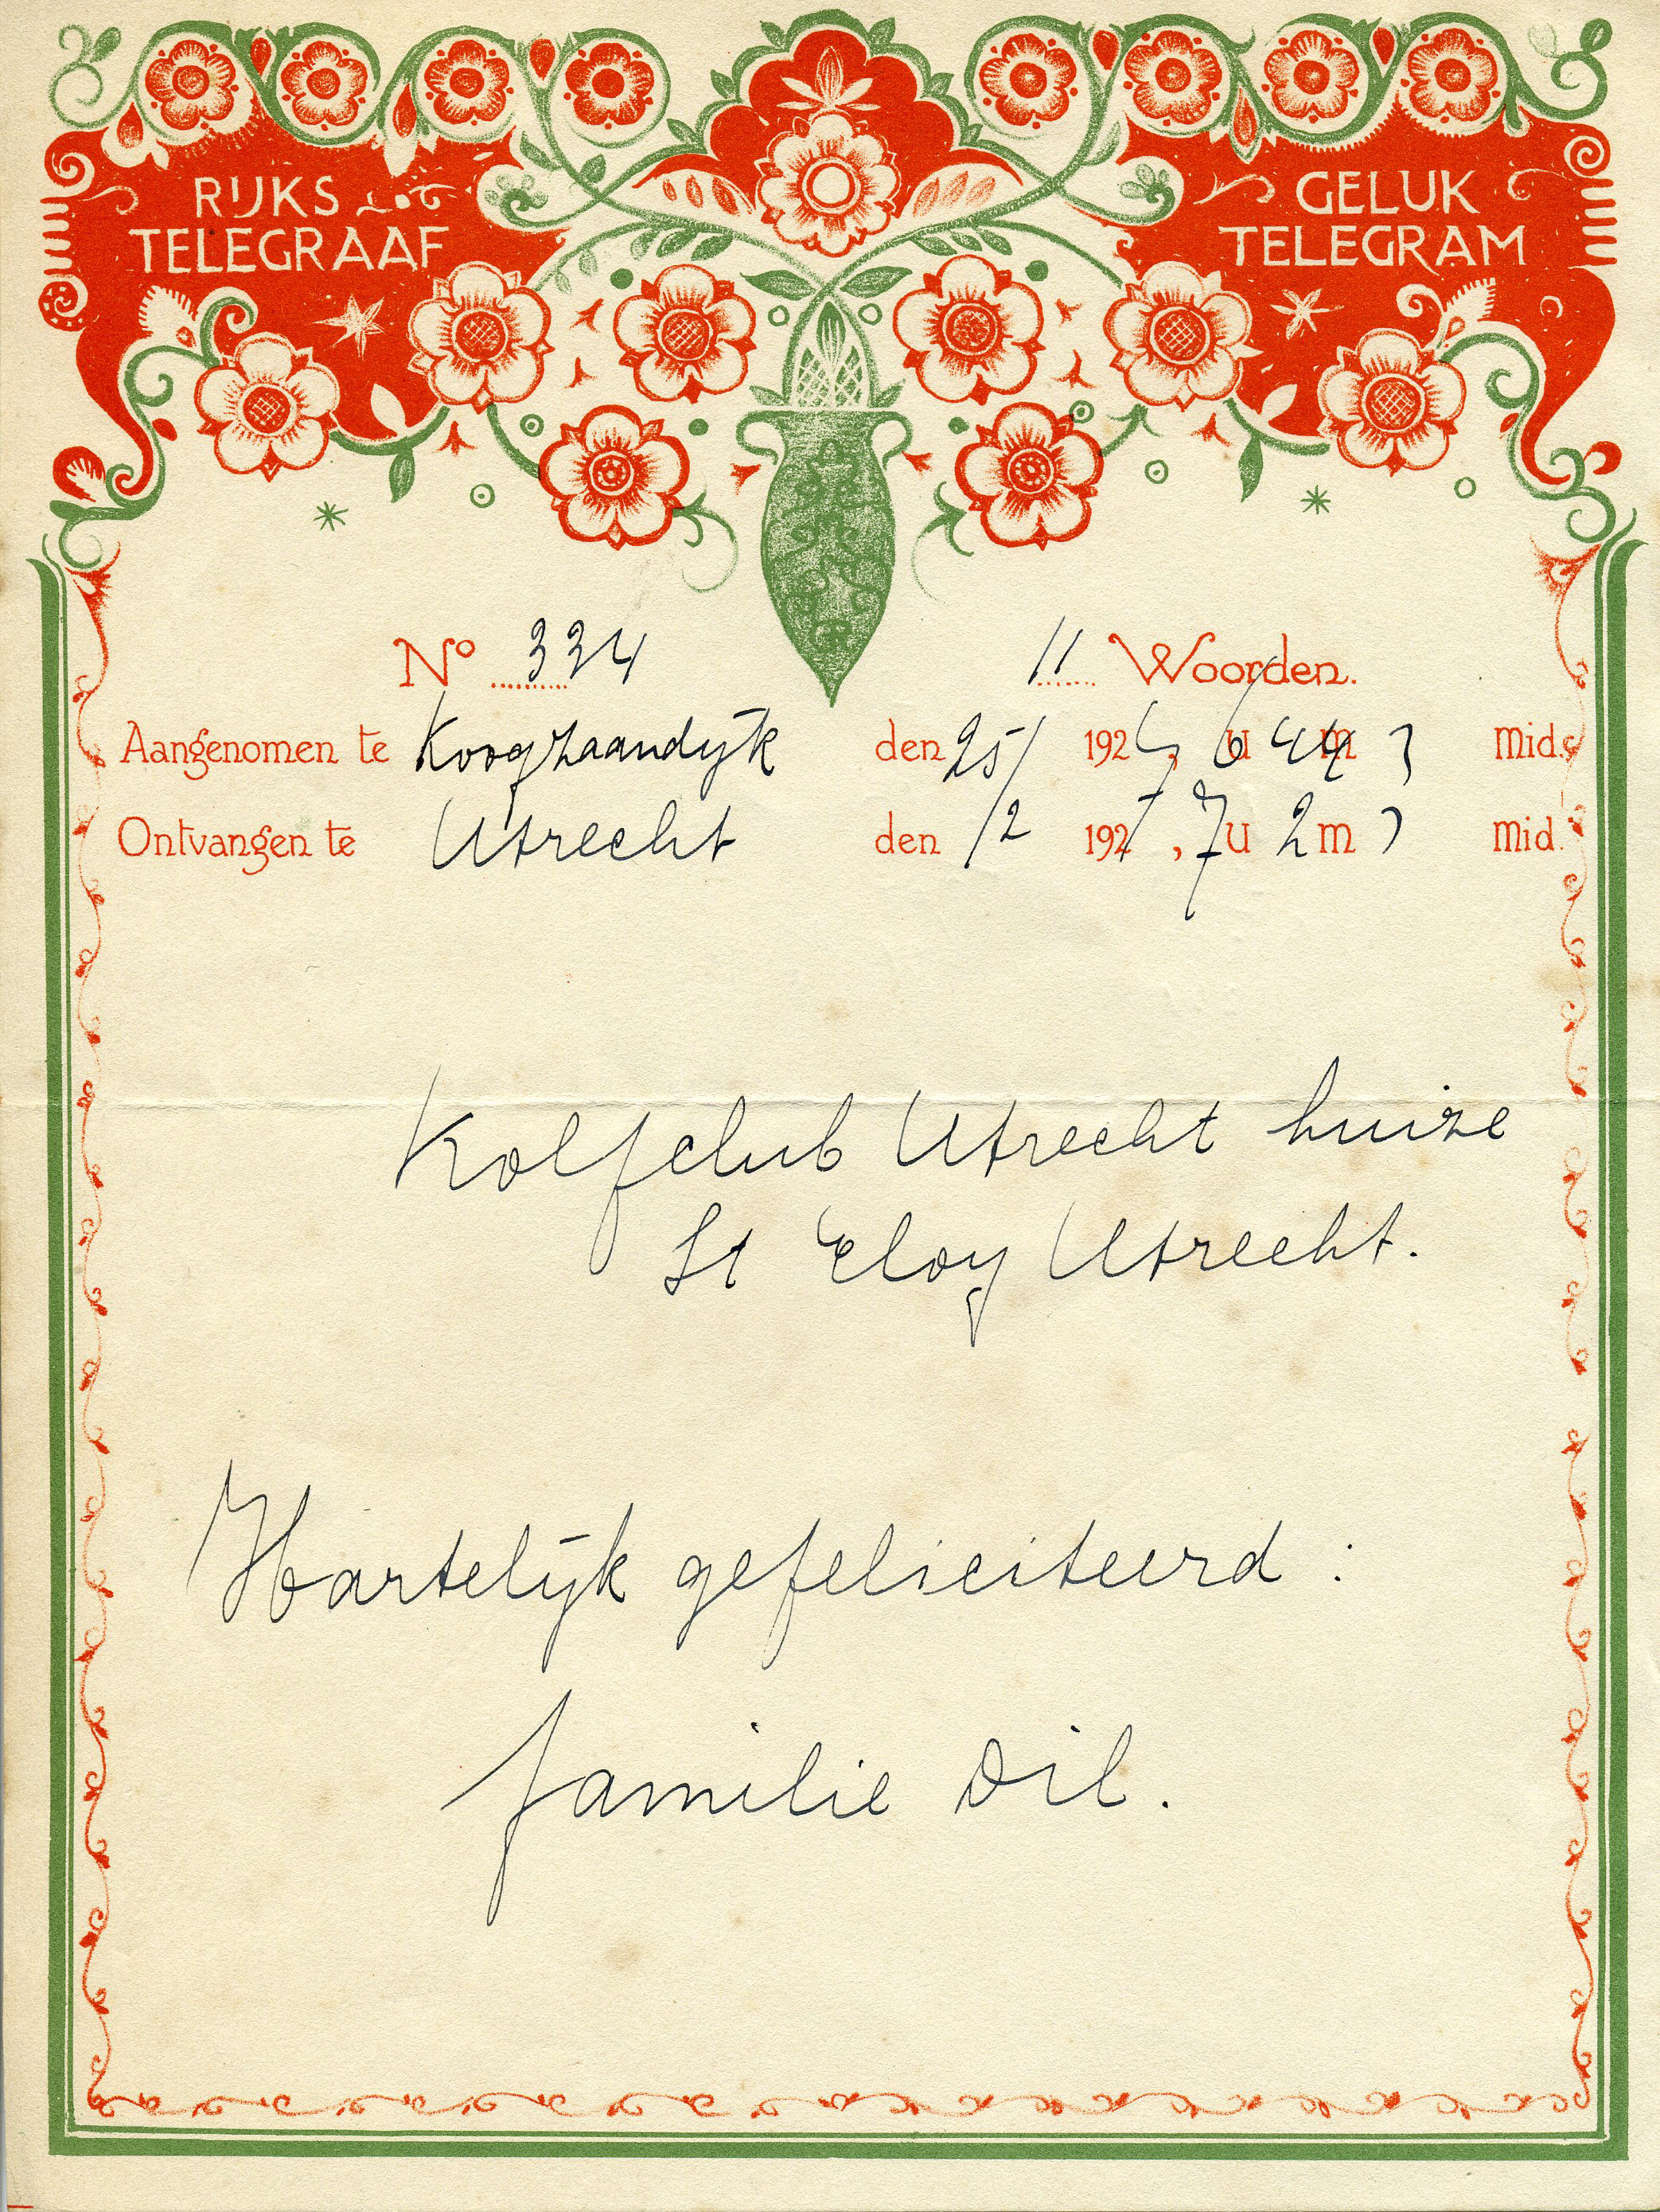 RIJKS
TELEGRAAF
GELUK
TELEGRAM
No 334 11 Woorden.
Aangenomen te Koogzaandijk den 25/ 192 , 6 u 44 m Mid.
Ontvangen te Utrecht den /2 192 , 7 u 2 m Mid.
Kolfclub Utrecht huize
St Eloy Utrecht.
Hartelijk gefeliciteerd :
familie Dil.